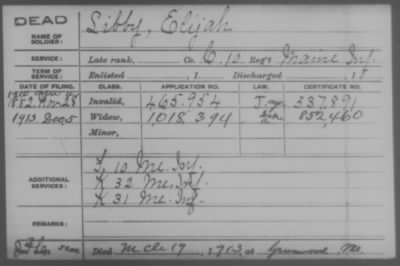 DEAD
Libby, Elijah
NAME OF
SOLDIER:
SERVICE: Late rank, Co. C, 10 Reg't Maine Inf.
TERM OF
SERVICE: Enlisted , 1 Discharged , 18
DATE OF FILING. CLASS. APPLICATION NO. LAW. CERTIFICATE NO.
1882, Nov. 28 Invalid, 465.954 537,891
1913 Dec 5 Widow, 1,018 394 852,460
Minor,
ADDITIONAL
SERVICES:
10 Me. Inf.
K 32 Me. Inf.
K 31 Me. Inf.
REMARKS:
Died Mch 19, 1913, at Greenwood Me